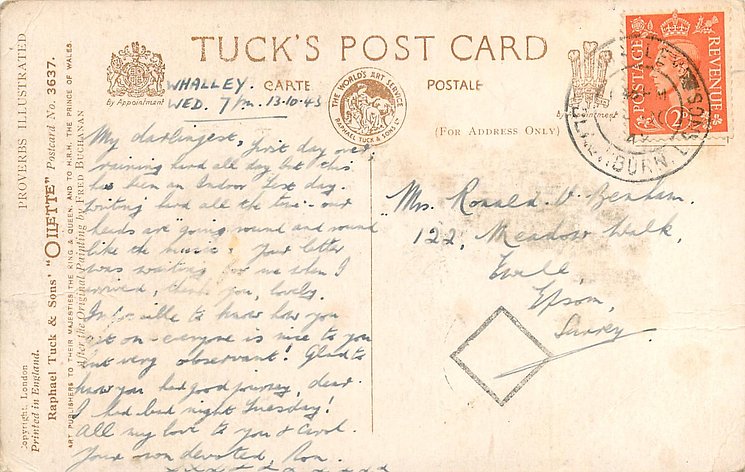 TUCK'S POST CARD
By Appointment
CARTE
POSTALE
THE WORLD'S ART SERVICE
RAPHAEL TUCK & SONS LTD
by Appointment
(FOR ADDRESS ONLY)
POSTAGE
REVENUE
BURN, LANCS
WHALLEY.
WED. 7/m. 13.10.43
My darlingest, First day over,
raining hard all day but this
has been an Indoor Test day.
Writing hard all the time - our
heads are "going round and round
like the music". Your letter
was waiting for me when I
arrived, thank you, lovely.
to know how you
got on - everyone is nice to you
but very observant! Glad to
know you had good journey dear.
I had bad night Tuesday!
All my love to you & Carol.
Your own devoted, Ron.
Mrs. Ronald V. Benham.
122, Meadow Walk,
Ewell,
Epsom,
Surrey.
PROVERBS ILLUSTRATED
Raphael Tuck & Sons' "OILETTE" Postcard No. 3637.
ART PUBLISHERS TO THEIR MAJESTIES THE KING & QUEEN, AND TO H.R.H. THE PRINCE OF WALES.
After the Original Painting by FRED BUCHANAN
Copyright, London
Printed in England.